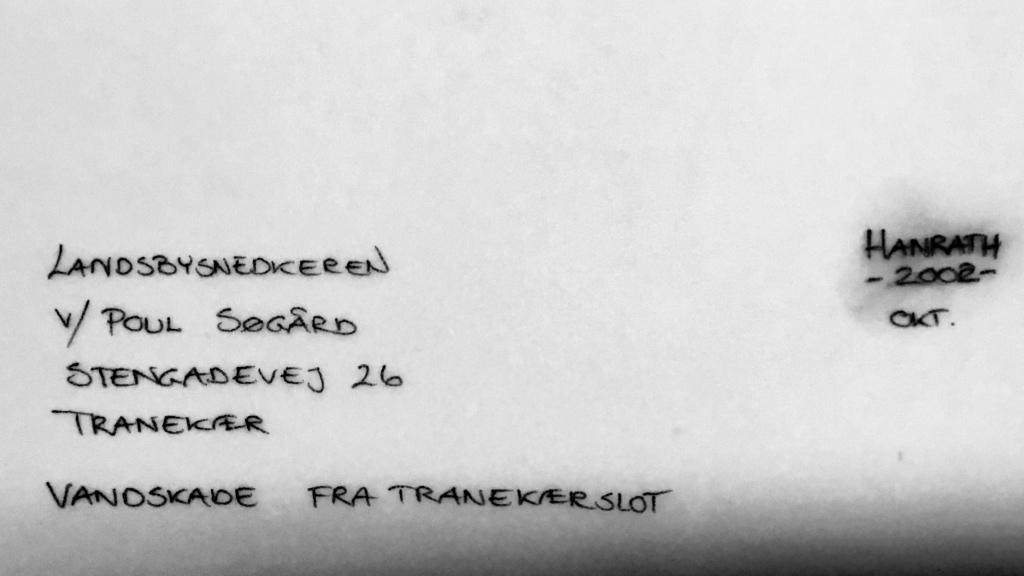 LANDSBYSNEDKEREN
V/ POUL SØGÅRD
STENGADEVEJ 26
TRANEKÆR
VANDSKADE FRA TRANEKÆR SLOT
HANRATH
- 2002 -
OKT.